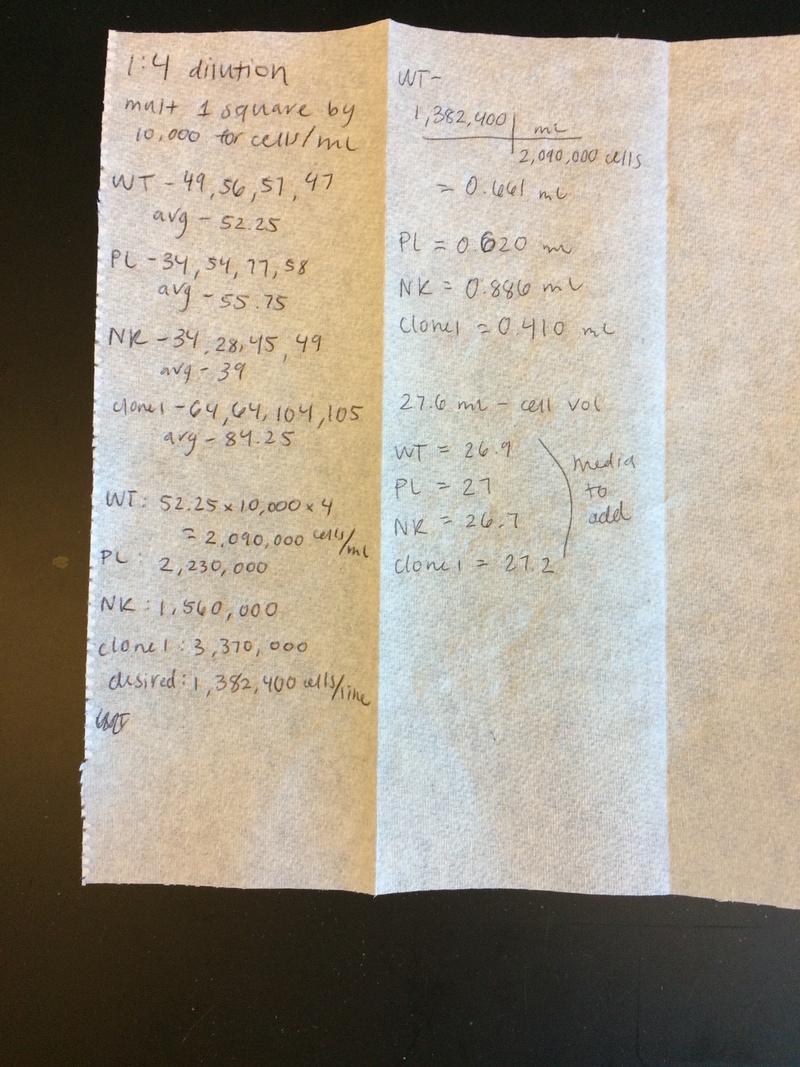 1:4 dilution
mult 1 square by
10,000 for cells/mL
WT - 49, 56, 57, 47
avg - 52.25
PL - 34, 54, 77, 58
avg - 55.75
NK - 34, 28, 45, 49
avg - 39
clone1 - 64, 64, 104, 105
avg - 84.25
WT: 52.25 x 10,000 x 4
= 2,090,000 cells/mL
PL: 2,230,000
NK: 1,560,000
clone1: 3,370,000
desired: 1,382,400 cells/line
WT-
1,382,400 | mL
2,090,000 cells
= 0.661 mL
PL = 0.620 mL
NK = 0.886 mL
Clone1 = 0.410 mL
27.6 mL - cell vol
WT = 26.9
PL = 27
NK = 26.7
Clone1 = 27.2
media
to
add